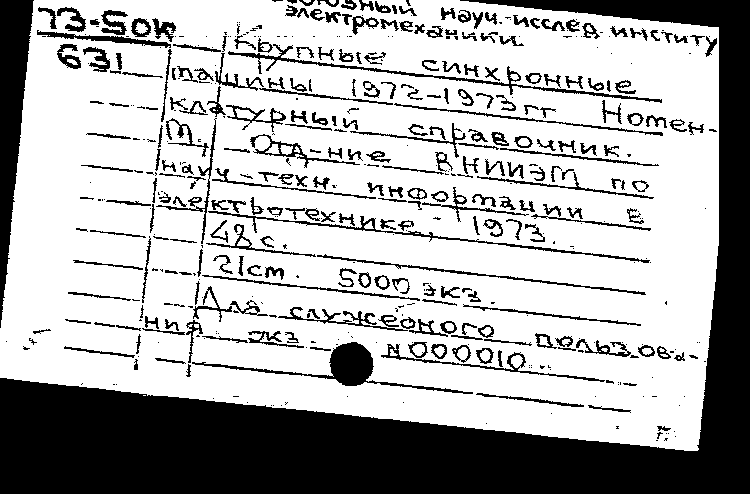 науч.-исслед. институ
электромеханики.
73-50к
631
Крупные синхронные
машины 1972-1973гг Номен-
клатурный справочник.
М., Отд-ние ВНИИЭМ по
науч-техн. информации в
электротехнике, 1973.
48с.
21см. 5000 экз.
Для служебного пользова-
ния экз. N000010.